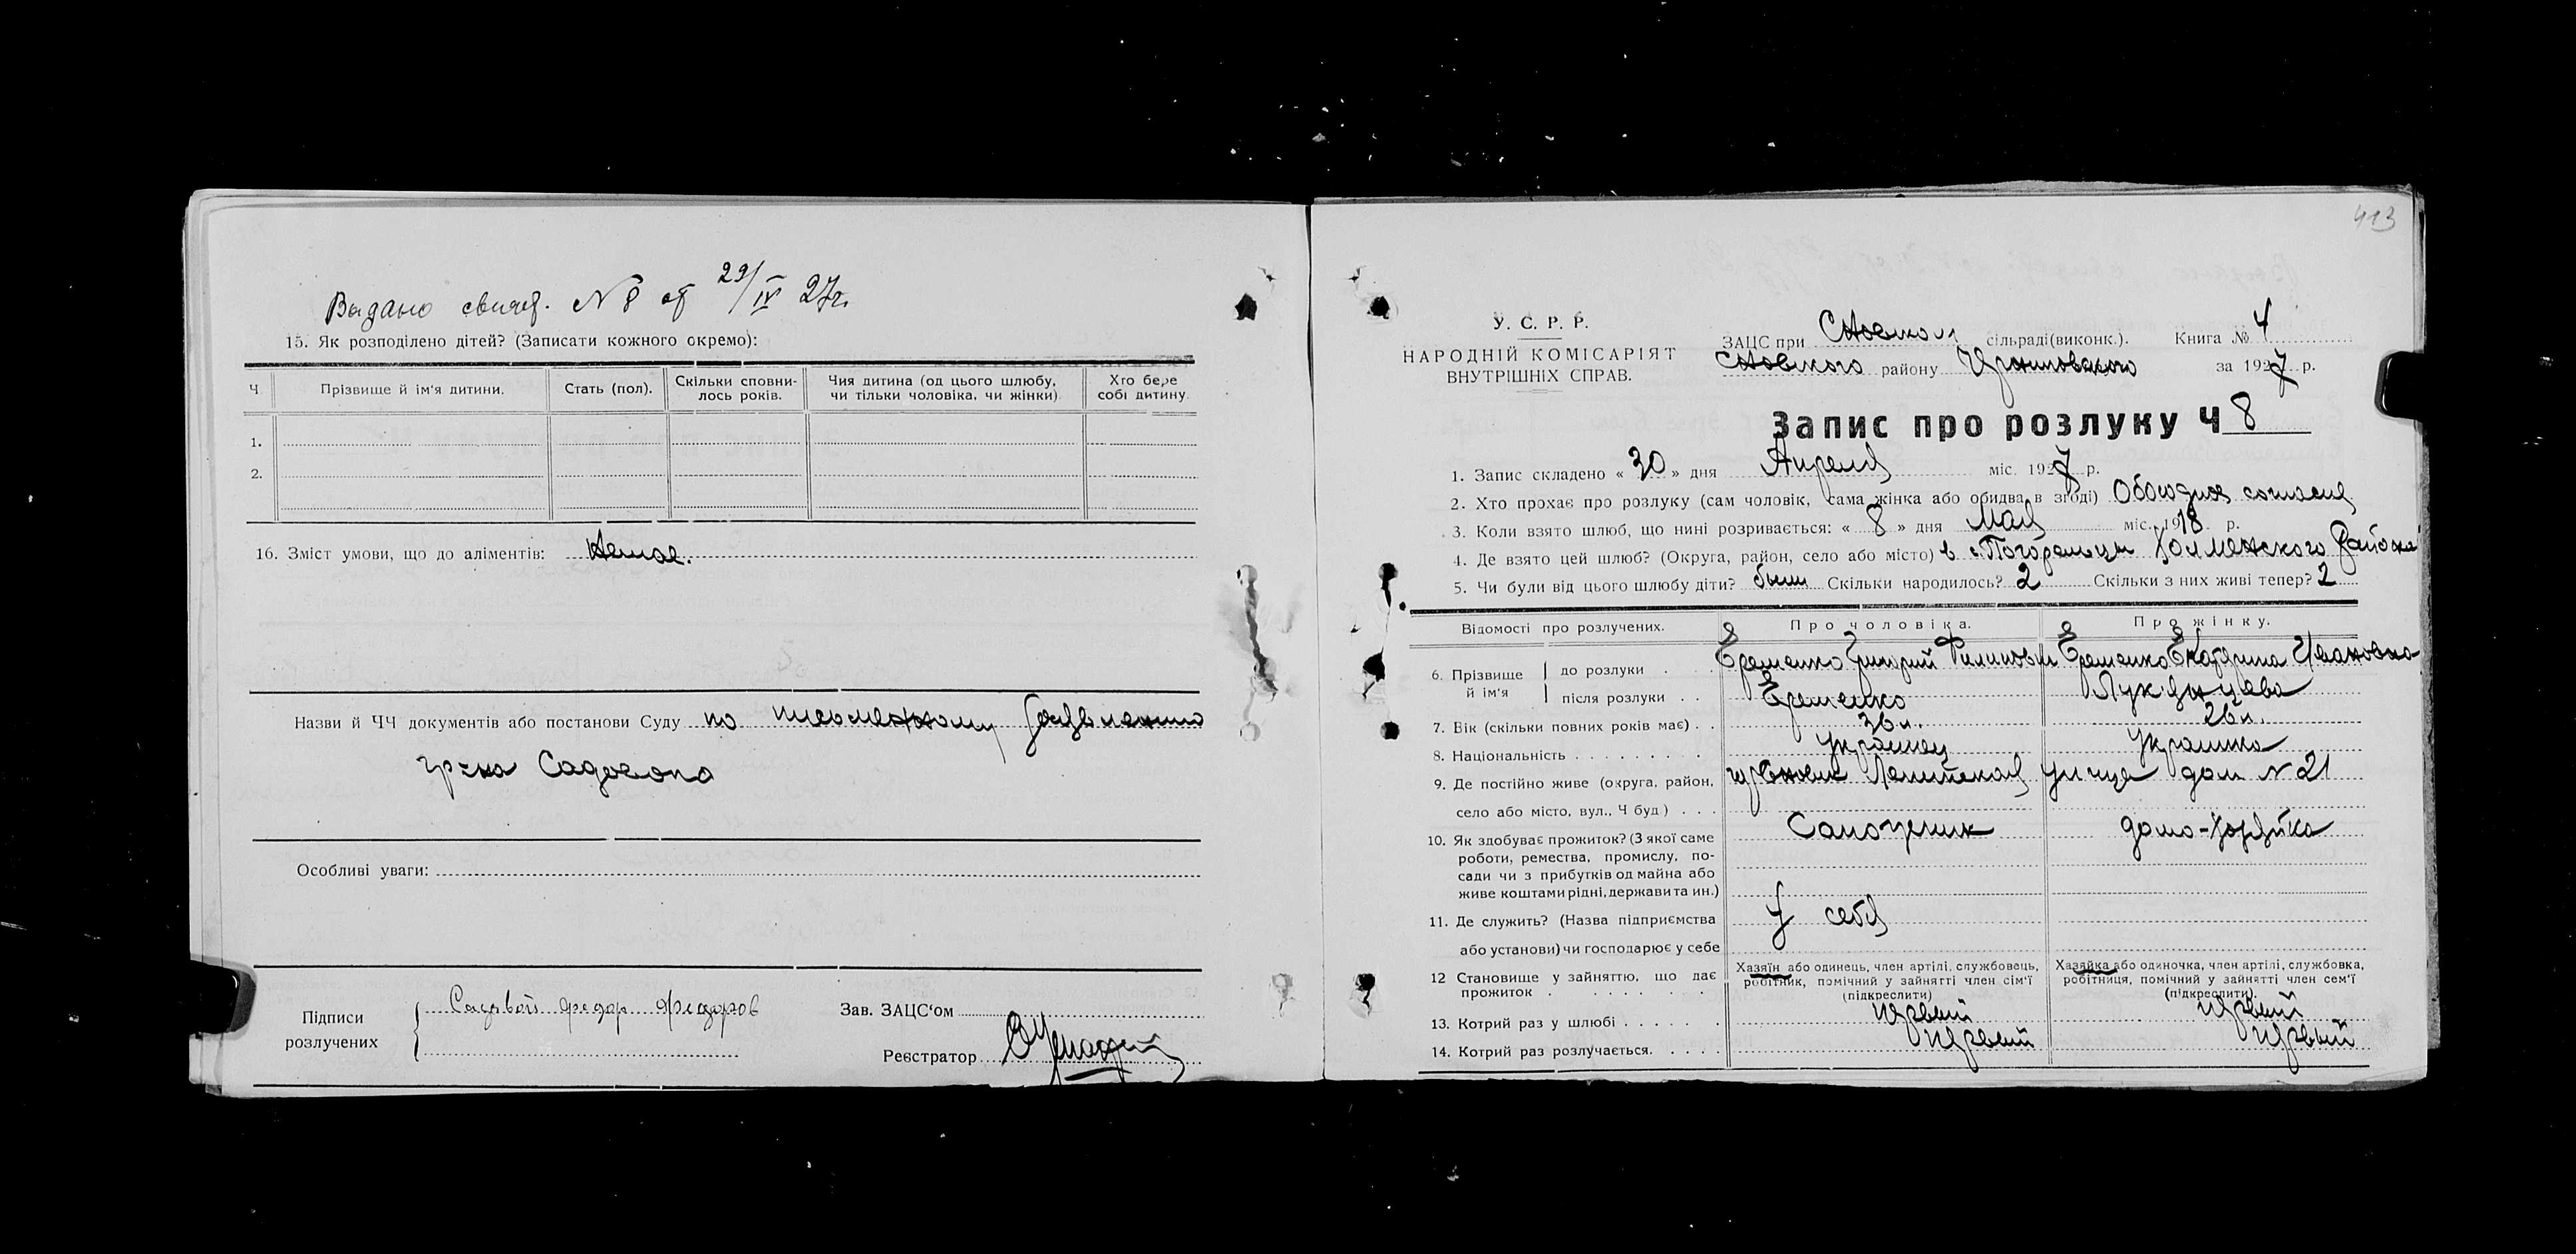 Выдано свидет. № 8 от 29/IV 27г.
15. Як розподілено дітей? (Записати кожного окремо):
Ч
Прізвище й ім'я дитини.
Стать (пол).
Скільки сповни-
лось років.
Чия дитина (од цього шлюбу,
чи тільки чоловіка, чи жінки)
Хто бере
собі дитину.
1.
2.
16. Зміст умови, що до аліментів:
Назви й ЧЧ документів або постанови Суду по письменному заявлению
гр-на
Особливі уваги:
Підписи
розлучених
Зав. ЗАЦС'ом
Реєстратор
413
У. С. Р. Р.
НАРОДНІЙ КОМІСАРІЯТ
ВНУТРІШНІХ СПРАВ.
ЗАЦС при Сновском сільраді(виконк.). Книга № 4
Сновского району за 1927 р.
Запис про розлуку Ч 8
1. Запис складено « 30 » дня Апреля міс. 1927 р.
2. Хто прохає про розлуку (сам чоловік, сама жінка або обидва в згоді) Обоюдное согласие
3. Коли взято шлюб, що нині розривається: « 8 » дня Мая міс. 1918 р.
4. Де взято цей шлюб? (Округа, район, село або місто) в с. Погорельцы Холменского Района
5. Чи були від цього шлюбу діти? были Скільки народилось? 2 Скільки з них живі тепер? 2
Відомості про розлучених.
Про чоловіка.
Про жінку.
6. Прізвище й ім'я
до розлуки
Еременко Григорий Филипович
Еременко Екатерина Ивановна
після розлуки
Еременко
Лукьянцева
7. Вік (скільки повних років має)
36 л.
26 л.
8. Національність
Украинец
Украинка
9. Де постійно живе (округа, район,
село або місто, вул., Ч буд.)
гор Сновск улице дом № 21
10. Як здобуває прожиток? (З якої саме
роботи, ремества, промислу, по-
сади чи з прибутків од майна або
живе коштами рідні, держави та ин.)
Сапожник
домо-хозяйка
11. Де служить? (Назва підприємства
або установи) чи господарює у себе
у себя
12 Становище у зайняттю, що дає
прожиток
Хазяїн або одинець, член артілі, службовець,
робітник, помічний у зайнятті член сім'ї
(підкреслити)
Хазяйка або одиночка, член артілі, службовка,
робітниця, помічний у зайнятті член сем'ї
(підкреслити).
13. Котрий раз у шлюбі
первый
первый
14. Котрий раз розлучається.
первый
первый